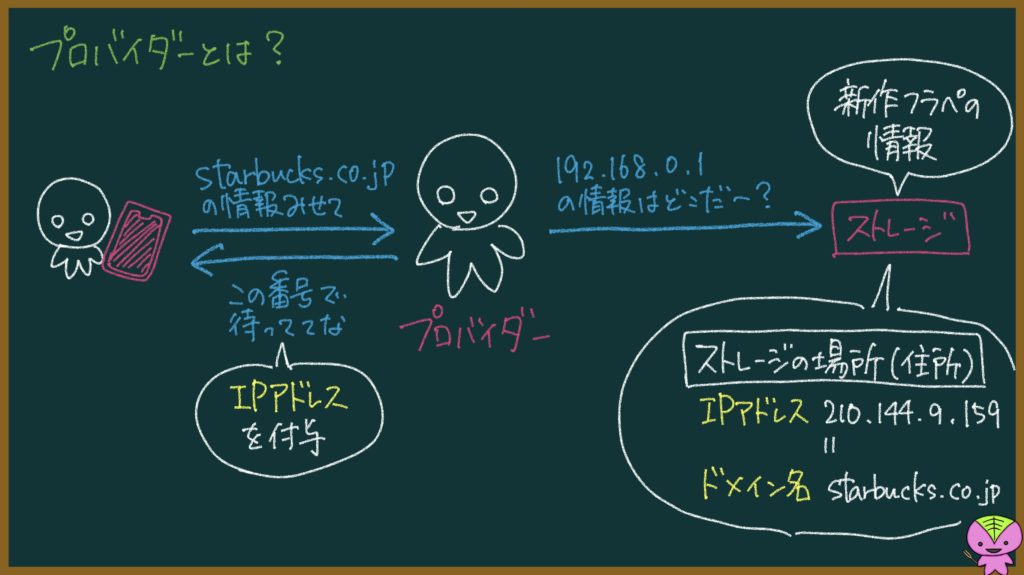 プロバイダーとは？
starbucks.co.jp
の情報みせて
この番号で
待っててな
IPアドレス
を付与
プロバイダー
192.168.0.1
の情報はどこだ〜？
新作フラペの
情報
ストレージ
ストレージの場所(住所)
IPアドレス 210.144.9.159
=
ドメイン名 starbucks.co.jp